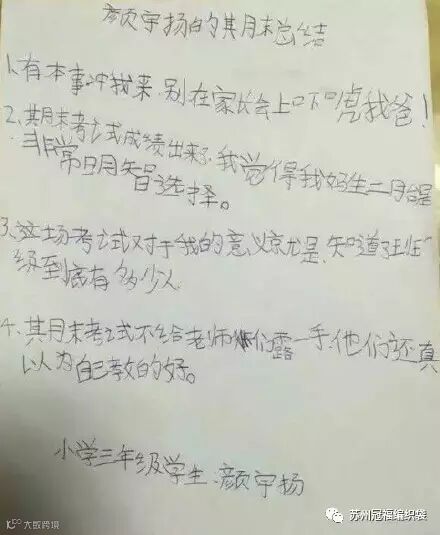 颜宇扬的期月末总结
1.有本事冲我来,别在家长会上吓唬我爸!
2.期末考试成绩出来了,我觉得我妈生二胎是
非常明智选择。
3.这场考试对于我的意义就是,知道班
级到底有多少人
4.期末考试不给老师们露一手,他们还真
以为自己教的好。
小学三年级学生:颜宇扬
苏州冠福编织袋
大数跨境